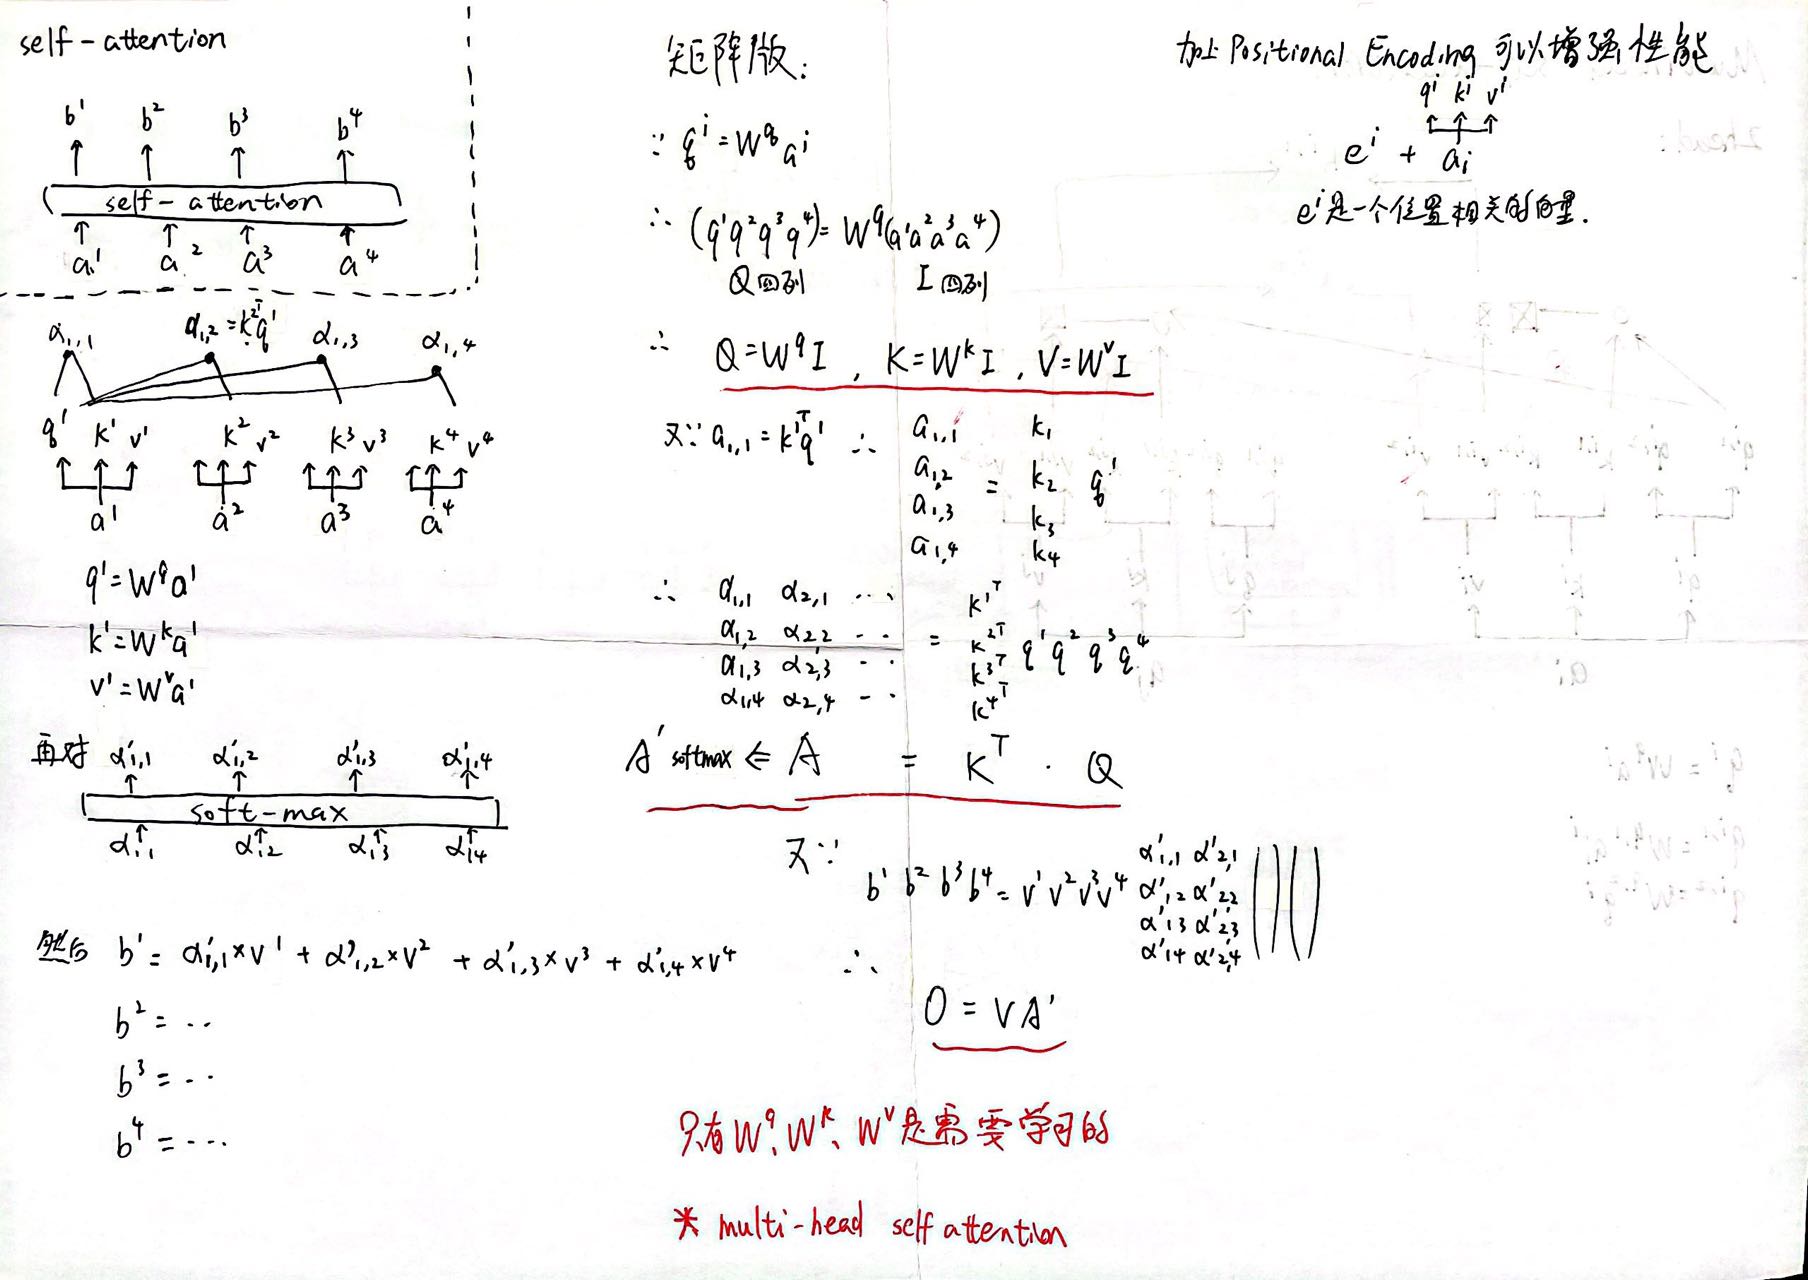 self-attention
b¹ b² b³ b⁴
self-attention
a¹ a² a³ a⁴
α₁,₁ α₁,₂ = k²ᵀq¹ α₁,₃ α₁,₄
q¹ k¹ v¹ k² v² k³ v³ k⁴ v⁴
a¹ a² a³ a⁴
q¹ = W^q a¹
k¹ = W^k a¹
v¹ = W^v a¹
再对 α'₁,₁ α'₁,₂ α'₁,₃ α'₁,₄
soft-max
α₁,₁ α₁,₂ α₁,₃ α₁,₄
然后 b¹ = α'₁,₁×v¹ + α'₁,₂×v² + α'₁,₃×v³ + α'₁,₄×v⁴
b² = ...
b³ = ...
b⁴ = ...
矩阵版:
∵ q^i = W^q a^i
∴ (q¹q²q³q⁴) = W^q(a¹a²a³a⁴)
Q四列 I四列
∴ Q = W^q I , K = W^k I , V = W^v I
又∵ a₁,₁ = k¹ᵀq¹ ∴
a₁,₁ k₁
a₁,₂ = k₂ q¹
a₁,₃ k₃
a₁,₄ k₄
∴ α₁,₁ α₂,₁ ... k¹ᵀ
α₁,₂ α₂,₂ ... = k²ᵀ q¹ q² q³ q⁴
α₁,₃ α₂,₃ ... k³ᵀ
α₁,₄ α₂,₄ ... k⁴ᵀ
A' softmax ⇐ A = Kᵀ · Q
又∵
α'₁,₁ α'₂,₁
b¹ b² b³ b⁴ = v¹ v² v³ v⁴ α'₁,₂ α'₂,₂
α'₁,₃ α'₂,₃
α'₁,₄ α'₂,₄
∴
O = VA'
只有W^q、W^k、W^v是需要学习的
* multi-head self attention
加上 Positional Encoding 可以增强性能
q^i k^i v^i
e^i + a_i
e^i是一个位置相关的向量.